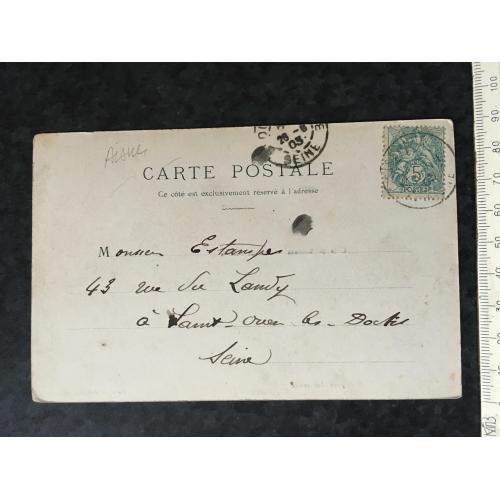 Aisne
26 -8
03
SEINE
5
POSTES
CARTE POSTALE
Ce côté est exclusivement réservé à l'adresse
Monsieur Estampes
43 rue du Landy
à Saint-Ouen-les-Docks
Seine
100
90
80
70
60
50
40
30
20
10